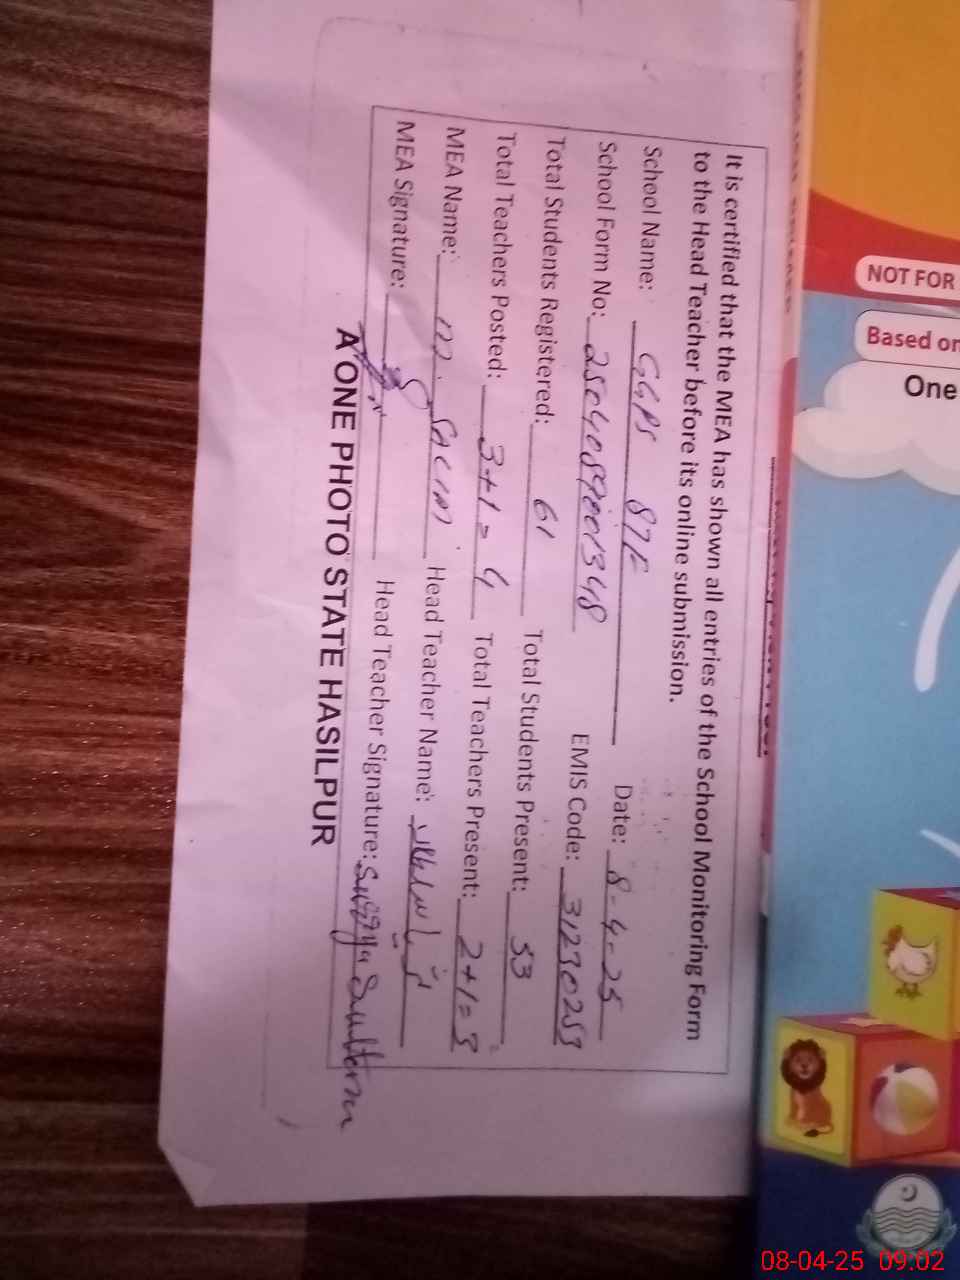 It is certified that the MEA has shown all entries of the School Monitoring Form
to the Head Teacher before its online submission.
School Name: GGPS 87F Date: 8-4-25
School Form No: 2504089001348 EMIS Code: 31230253
Total Students Registered: 61 Total Students Present: 53
Total Teachers Posted: 3+1= 4 Total Teachers Present: 2+1= 3
MEA Name: M. Saleem Head Teacher Name:
MEA Signature: Head Teacher Signature:
A ONE PHOTO STATE HASILPUR
NOT FOR
Based on
One
08-04-25 09:02